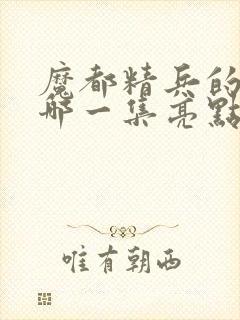 魔都精兵的
哪一集亮點
唯有朝西